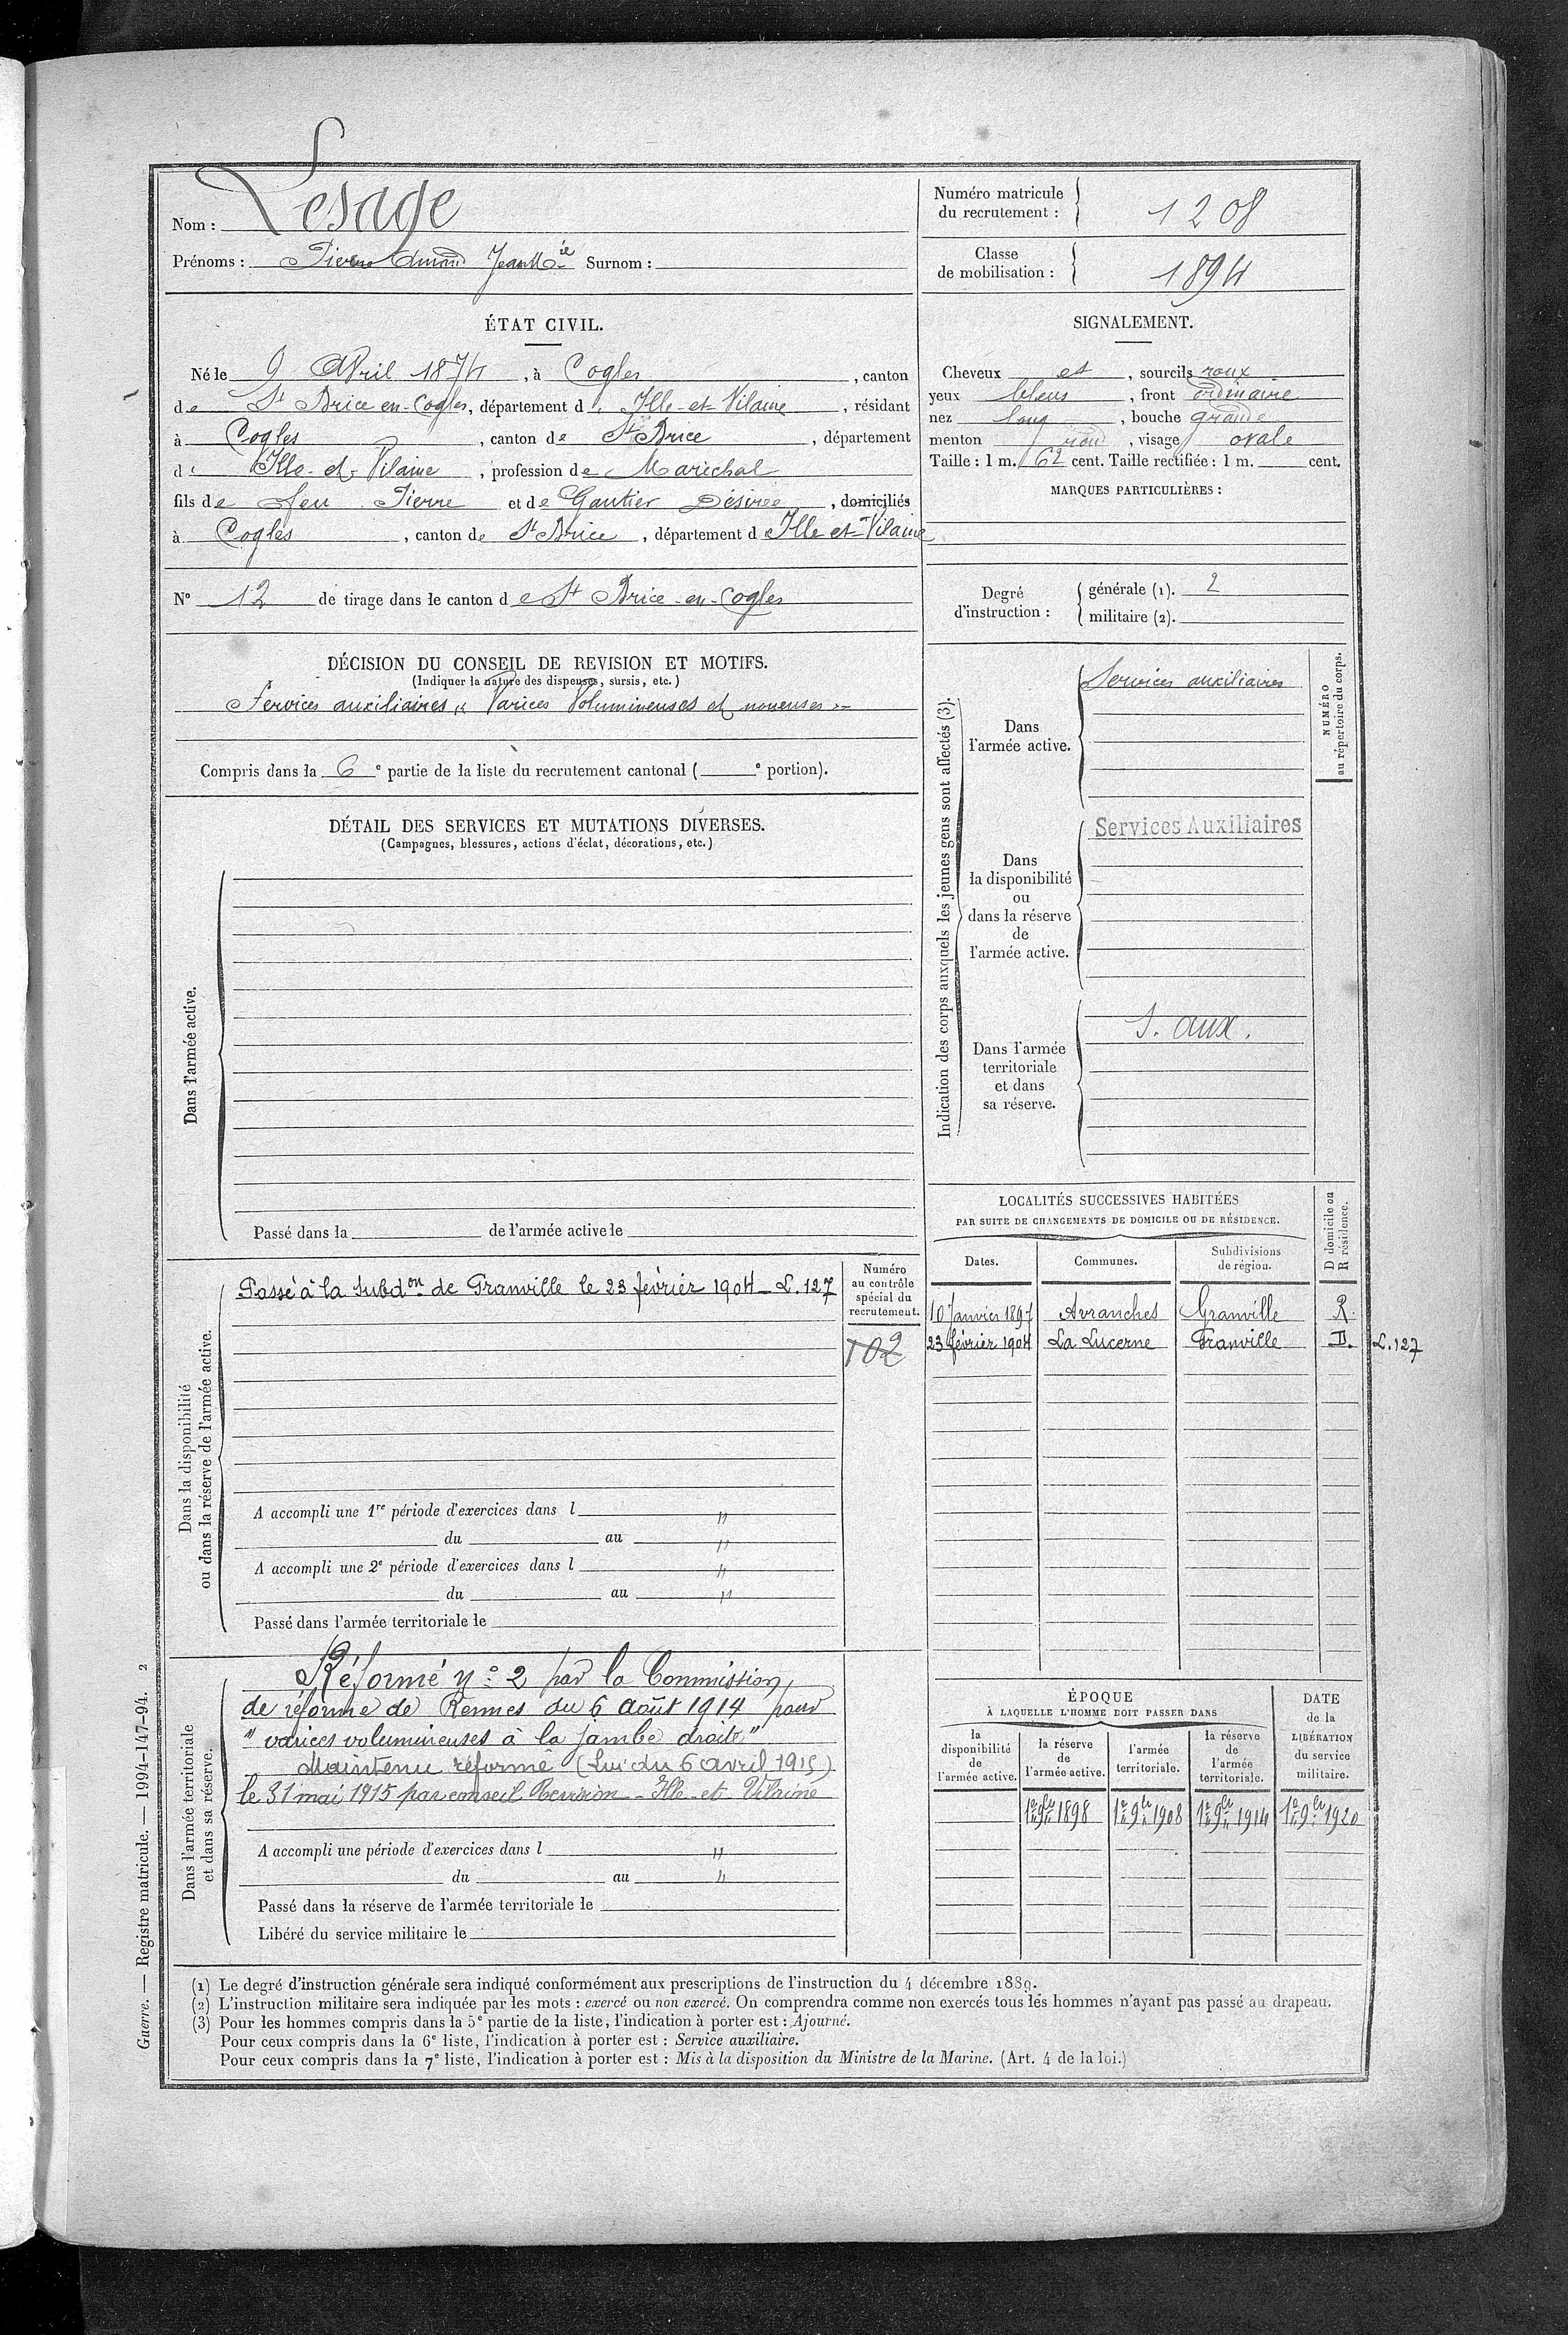 Nom : Lesage
Prénoms : Pierre Amand Jean Mie Surnom :
Numéro matricule du recrutement : 1208
Classe de mobilisation : 1894
ÉTAT CIVIL.
Né le 9 Avril 1874, à Cogles, canton
de St Brice en-Cogles, département d'Ille-et-Vilaine, résidant
à Cogles, canton de St Brice, département
d'Ille-et-Vilaine, profession de Maréchal
fils de feu Pierre et de Gautier Désirée, domiciliés
à Cogles, canton de St Brice, département d Ille et-Vilaine
N° 12 de tirage dans le canton de St Brice-en-Cogles
SIGNALEMENT.
Cheveux et, sourcils roux
yeux bleus, front ordinaire
nez long, bouche grande
menton rond, visage ovale
Taille : 1 m. 62 cent. Taille rectifiée : 1 m. cent.
MARQUES PARTICULIÈRES :
Degré d'instruction :
générale (1). 2
militaire (2).
DÉCISION DU CONSEIL DE REVISION ET MOTIFS.
(Indiquer la nature des dispenses, sursis, etc.)
Services auxiliaires « Varices Volumineuses et noueuses »
Compris dans la 6e partie de la liste du recrutement cantonal ( e portion).
DÉTAIL DES SERVICES ET MUTATIONS DIVERSES.
(Campagnes, blessures, actions d'éclat, décorations, etc.)
Dans l'armée active.
Passé dans la de l'armée active le
Indication des corps auxquels les jeunes gens sont affectés (3).
NUMÉRO
au répertoire du corps.
Dans
l'armée active.
Services auxiliaires
Dans
la disponibilité
ou
dans la réserve
de
l'armée active.
Services Auxiliaires
Dans l'armée
territoriale
et dans
sa réserve.
S. aux.
Dans la disponibilité
ou dans la réserve de l'armée active.
Passé à la Subdon de Granville le 23 février 1904 - L. 127
Numéro
au contrôle
spécial du
recrutement.
A accompli une 1re période d'exercices dans l "
du au "
A accompli une 2e période d'exercices dans l "
du au "
Passé dans l'armée territoriale le
LOCALITÉS SUCCESSIVES HABITÉES
PAR SUITE DE CHANGEMENTS DE DOMICILE OU DE RÉSIDENCE.
D domicile ou
R résidence.
Dates. Communes. Subdivisions de région.
10 Janvier 1897 Avranches Granville R.
23 février 1904 La Lucerne Granville D. L. 127
Dans l'armée territoriale
et dans sa réserve.
Réformé No 2 par la Commission
de réforme de Rennes du 6 août 1914 pour
" varices volumineuses à la jambe droite"
Maintenu réformé (Loi du 6 avril 1915)
le 31 mai 1915 par conseil Revision - Ille-et-Vilaine
A accompli une période d'exercices dans l "
du au "
Passé dans la réserve de l'armée territoriale le
Libéré du service militaire le
ÉPOQUE
À LAQUELLE L'HOMME DOIT PASSER DANS
la disponibilité de l'armée active.
la réserve de l'armée active.
l'armée territoriale.
la réserve de l'armée territoriale.
DATE de la LIBÉRATION du service militaire.
1er 9bre 1898 1er 9bre 1908 1er 9bre 1914 1er 9bre 1920
(1) Le degré d'instruction générale sera indiqué conformément aux prescriptions de l'instruction du 4 décembre 1889.
(2) L'instruction militaire sera indiquée par les mots : exercé ou non exercé. On comprendra comme non exercés tous les hommes n'ayant pas passé au drapeau.
(3) Pour les hommes compris dans la 5e partie de la liste, l'indication à porter est : Ajourné.
Pour ceux compris dans la 6e liste, l'indication à porter est : Service auxiliaire.
Pour ceux compris dans la 7e liste, l'indication à porter est : Mis à la disposition du Ministre de la Marine. (Art. 4 de la loi.)
Guerre. — Registre matricule. — 1994-147-94. 2